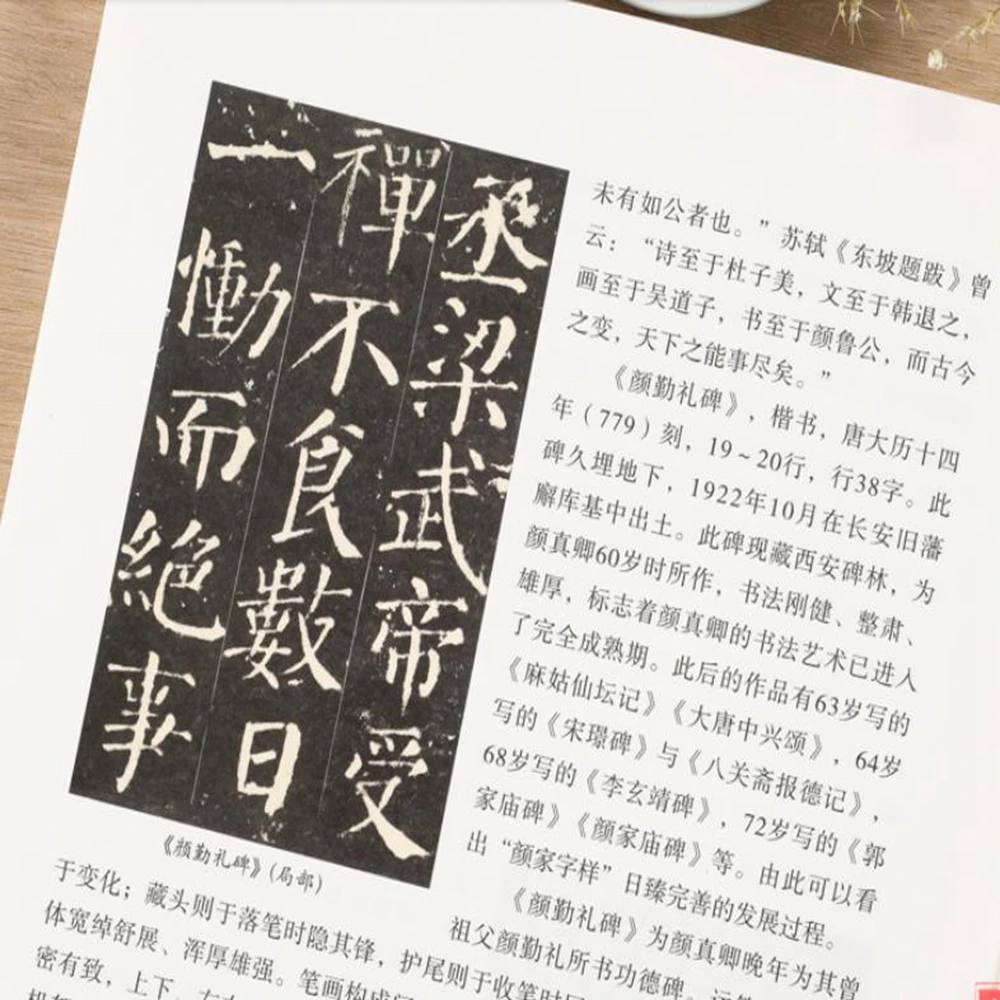 丞梁武帝受
禪不食數日
一慟而絕事
《颜勤礼碑》(局部)
未有如公者也。”苏轼《东坡题跋》曾
云：“诗至于杜子美，文至于韩退之，
画至于吴道子，书至于颜鲁公，而古今
之变，天下之能事尽矣。”
《颜勤礼碑》，楷书，唐大历十四
年（779）刻，19~20行，行38字。此
碑久埋地下，1922年10月在长安旧藩
廨库基中出土。此碑现藏西安碑林，为
颜真卿60岁时所作，书法刚健、整肃、
雄厚，标志着颜真卿的书法艺术已进入
了完全成熟期。此后的作品有63岁写的
《麻姑仙坛记》《大唐中兴颂》，64岁
写的《宋璟碑》与《八关斋报德记》，
68岁写的《李玄靖碑》，72岁写的《郭
家庙碑》《颜家庙碑》等。由此可以看
出“颜家字样”日臻完善的发展过程。
《颜勤礼碑》为颜真卿晚年为其曾
祖父颜勤礼所书功德碑。运
于变化；藏头则于落笔时隐其锋，护尾则于收笔时
体宽绰舒展、浑厚雄强。笔画构成
密有致，上下、左